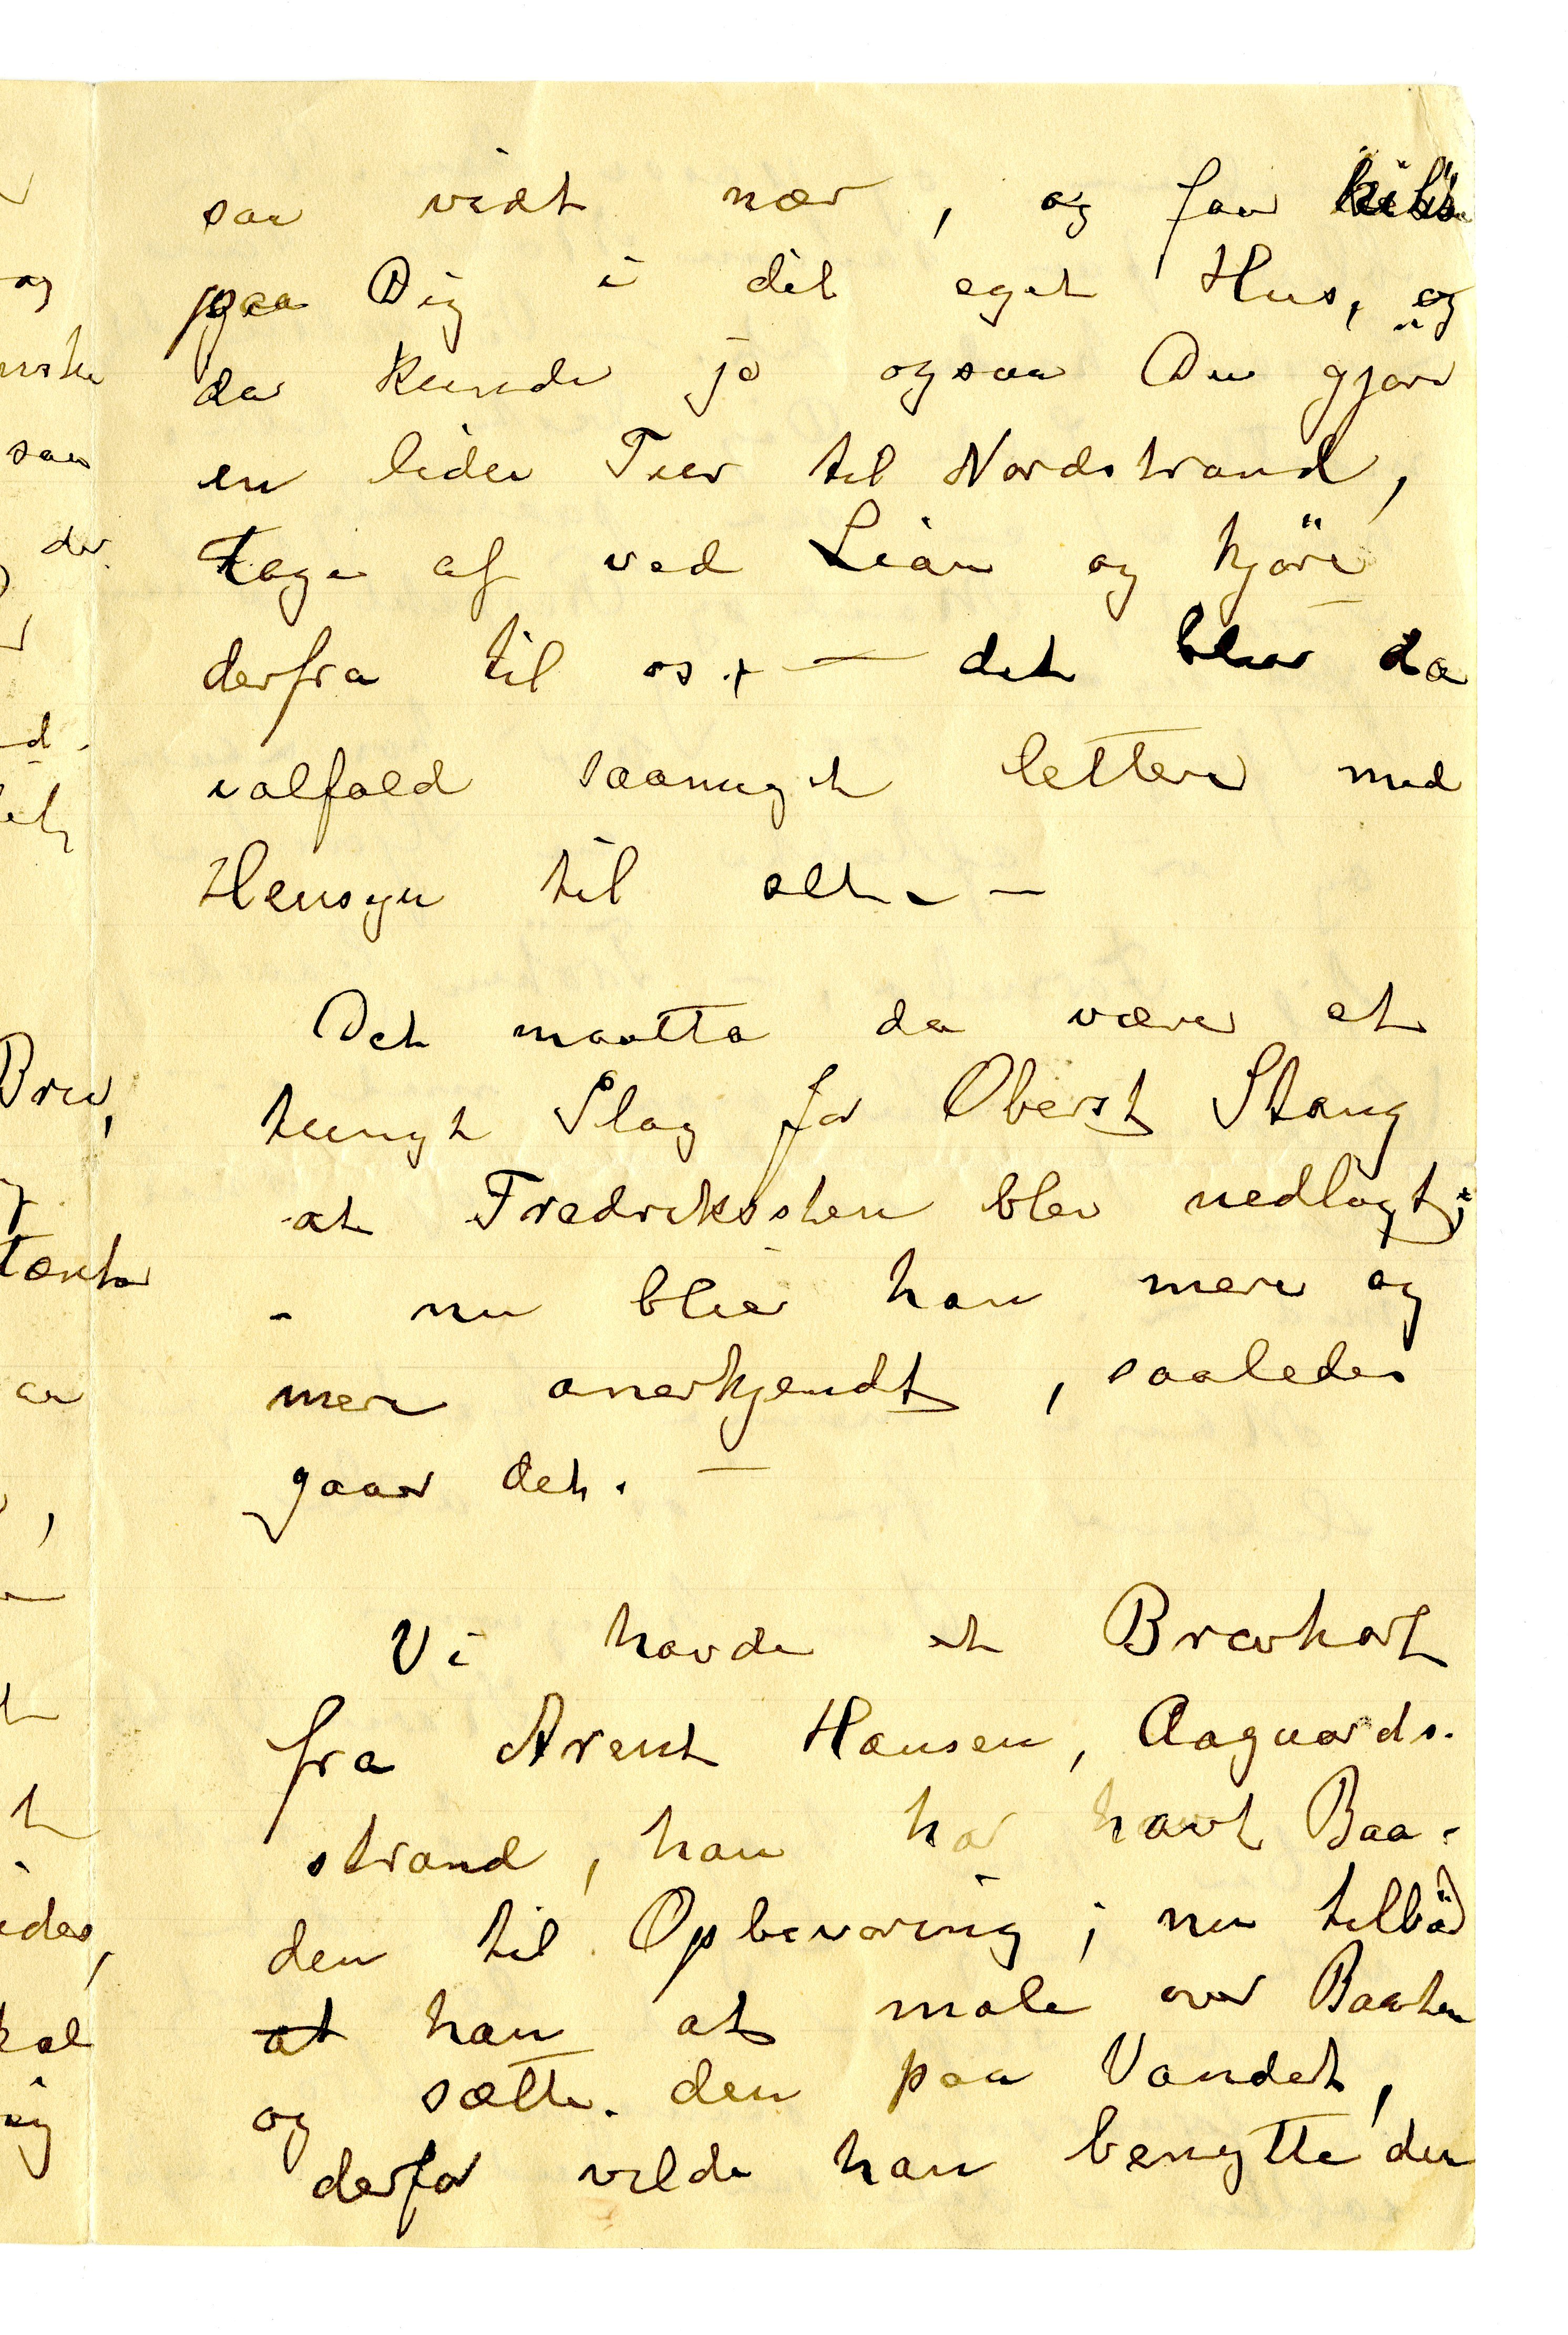 saa vidt nær, og faar hilse
paa Dig i dit eget Hus, og
da kunde jo ogsaa Du gjöre
en liden Tur til Nordstrand,
tage af ved Lian og kjöre
derfra til os, — det blir da
ialfald saameget lettere med
Hensyn til alt. —
Det maatte da være et
tungt Slag for Oberst Stang
at Fredriksten blev nedlagt;
- nu blir han mere og
mere anerkjendt, saaledes
gaar det. —
Vi havde et Brevkort
fra Arent Hansen, Aagaards-
strand, han har havt Baa-
den til Opbevaring; nu tilböd
at han at male over Baaten
og sætte den paa Vandet,
derfor vilde han benytte den
Brev,
og
saa
der